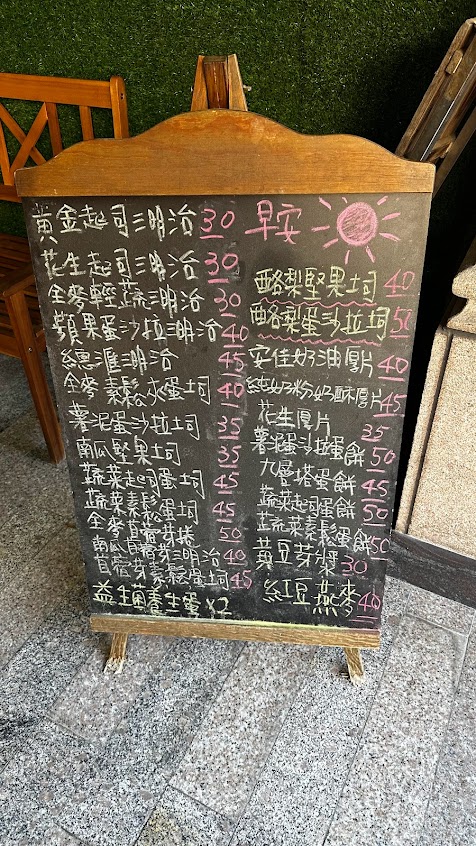 黃金起司三明治 30
花生起司三明治 30
全麥輕蔬三明治 30
蘋果蛋沙拉三明治 40
總滙三明治 45
全麥素鬆火蛋土司 40
薯泥蛋沙拉土司 35
南瓜堅果土司 35
蔬菜起司蛋土司 45
蔬菜素鬆蛋土司 45
全麥苜蓿芽捲 50
南瓜苜蓿芽三明治 40
苜蓿芽素鬆蛋土司 45
益生菌養生蛋 x2
早安
酪梨堅果土司 40
酪梨蛋沙拉土司 50
安佳奶油厚片 40
純奶粉奶酥厚片 45
花生厚片 35
薯泥蛋沙拉蛋餅 50
九層塔蛋餅 45
蔬菜起司蛋餅 50
蔬菜素鬆蛋餅 50
黃豆芽漿 30
紅豆燕麥 40